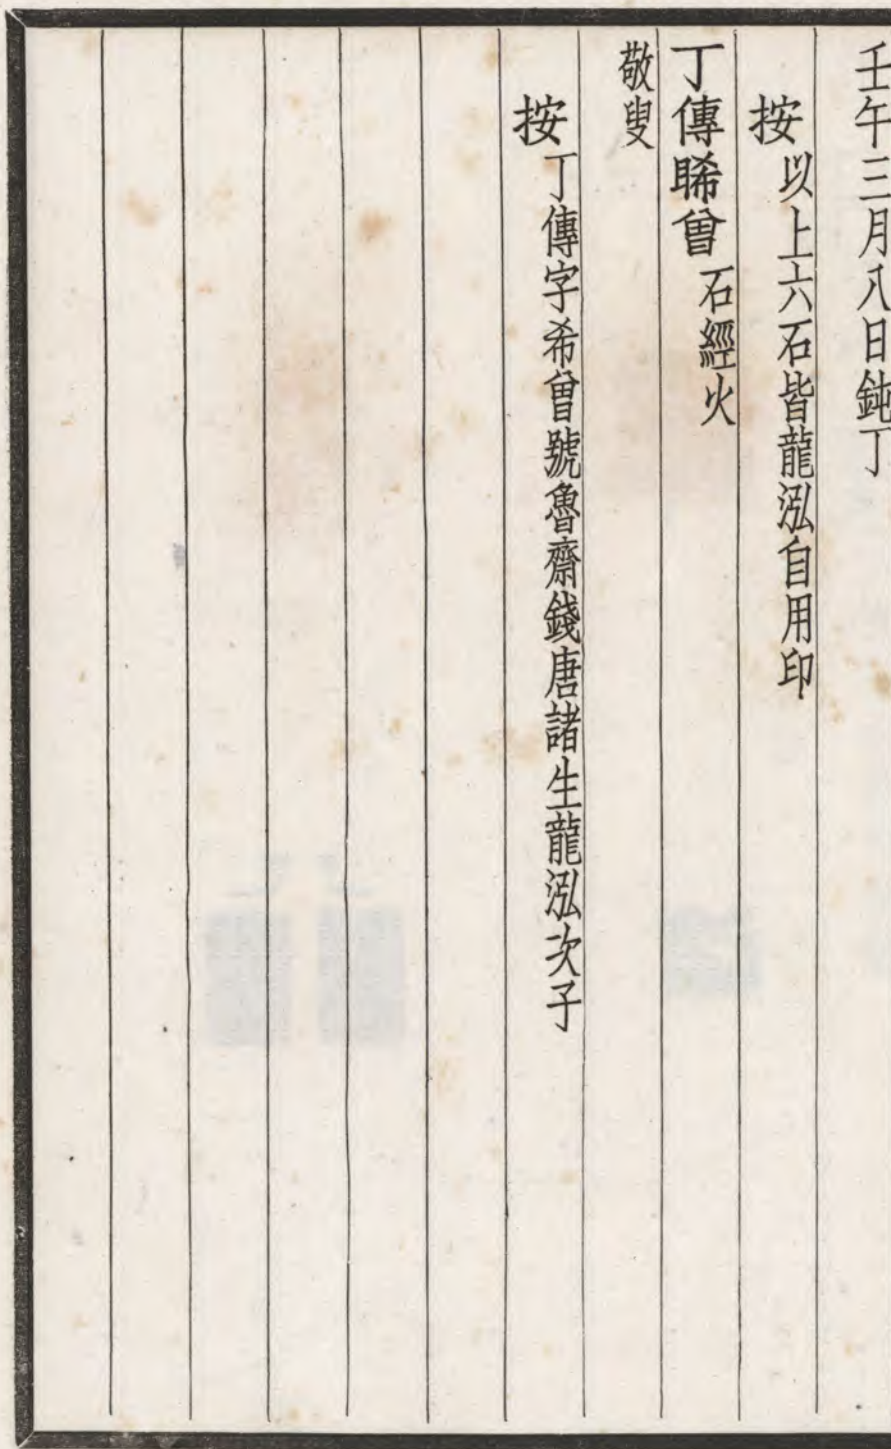 壬午三月八日鈍丁
按以上六石皆龍泓自用印
丁傳睎曾石經火
敬叟
按丁傳字希曾號魯齋錢唐諸生龍泓次子